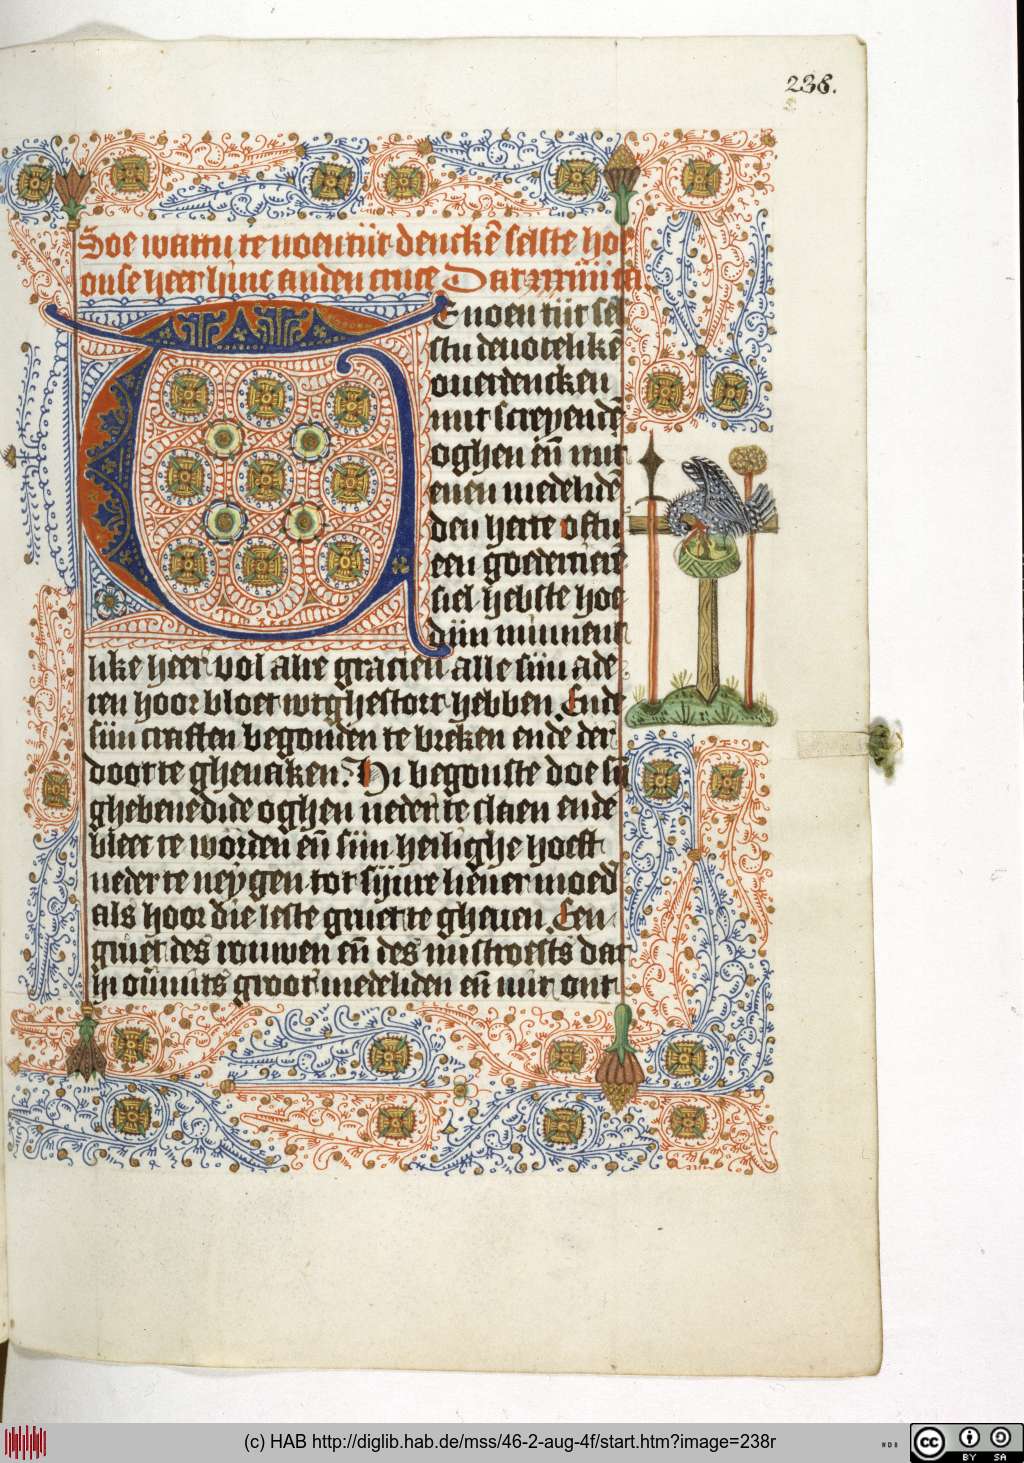 238.
Soe wattu te noen tijt denckē selste hoe
onse heer hinc an den cruce Dat
Te noen tijt sel
stu deuotelikē
ouerdencken
mit screyendē
oghen eñ mit
enen medelidē
den herte oftu
een goedertiere
siel hebste hoe
dijn minnent
like heer vol alre gracien alle sijn ade
ren hoor bloet wtghestort hebben Ende
sijn craften begonden te breken ende der
doot te ghenaken. Hi begonste doe sij
ghebenedide oghen neder te slaen ende
bleec te worden eñ sijn heilighe hoeft
neder te neyghen tot sijnre lieuer moed
als hoor die leste gruet te gheuen. Een
gruet des rouwen eñ des mistroests dat
hi ouermits groot medeliden eñ mit ont
(c) HAB http://diglib.hab.de/mss/46-2-aug-4f/start.htm?image=238r
WDB
cc BY SA